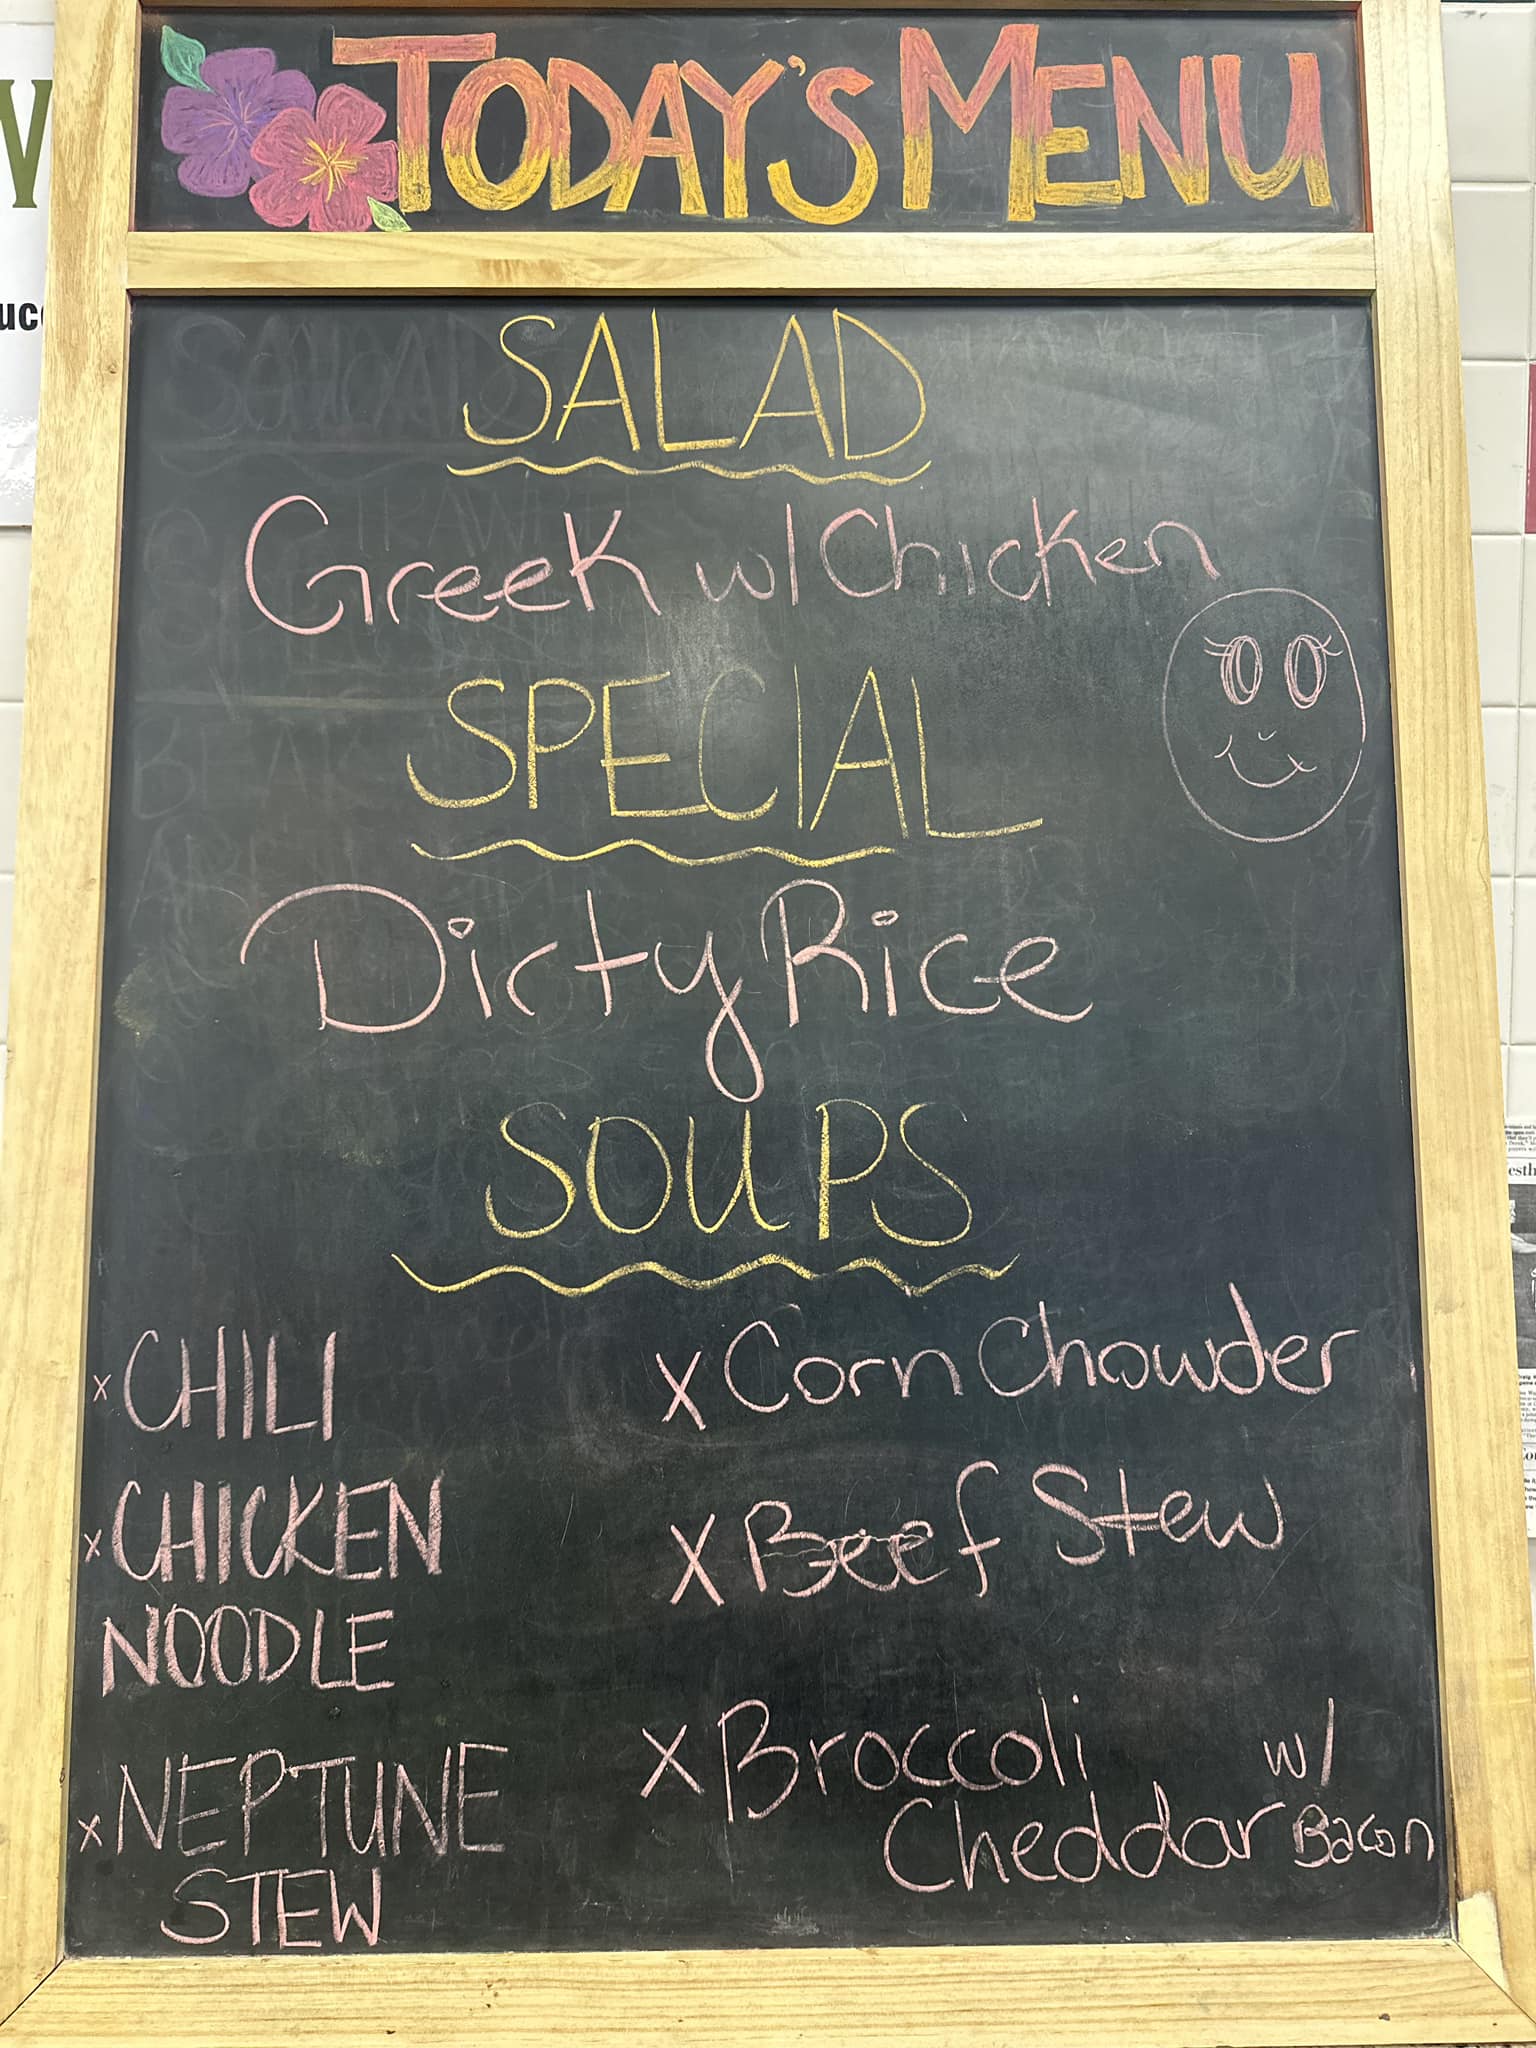 TODAY'S MENU
SALAD
Greek w/ Chicken
SPECIAL
Dirty Rice
SOUPS
x CHILI
x CHICKEN
NOODLE
x NEPTUNE
STEW
x Corn Chowder
x Beef Stew
x Broccoli
Cheddar w/
Bacon